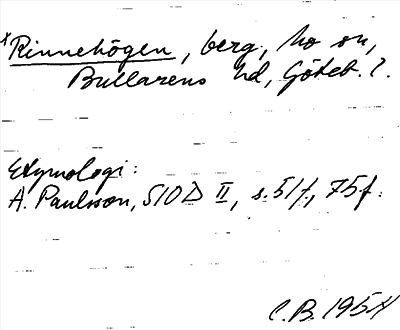 *Rinnehögen, berg, Mo sn,
Bullarens hd, Göteb. l.
Etymologi:
A. Paulsson, SIOD II, s. 51 f., 75 f.
C.B. 1954